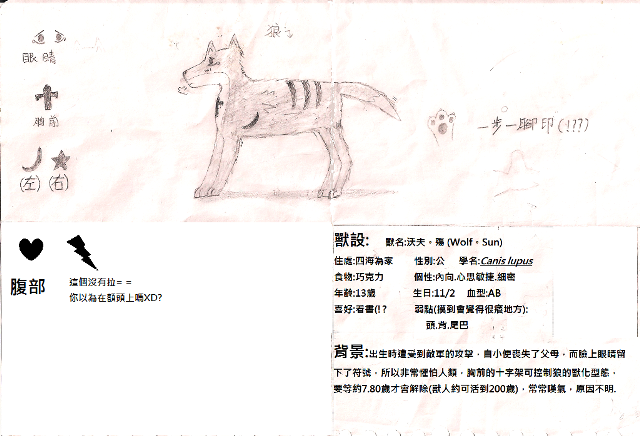 狼
眼睛
胸前
(左) (右)
一步一腳印(!??)
腹部
這個沒有拉= =
你以為在額頭上嗎XD?
獸設: 獸名:沃夫。殤 (Wolf。Sun)
住處:四海為家 性別:公 學名:Canis lupus
食物:巧克力 個性:內向.心思敏捷.細密
年齡:13歲 生日:11/2 血型:AB
喜好:看書(!? 弱點(摸到會覺得很癢地方):
頭.背.尾巴
背景:出生時遭受到敵軍的攻擊，自小便喪失了父母，而臉上眼睛留
下了符號，所以非常懼怕人類，胸前的十字架可控制狼的獸化型態，
要等約7.80歲才會解除(獸人約可活到200歲)，常常嘆氣，原因不明.